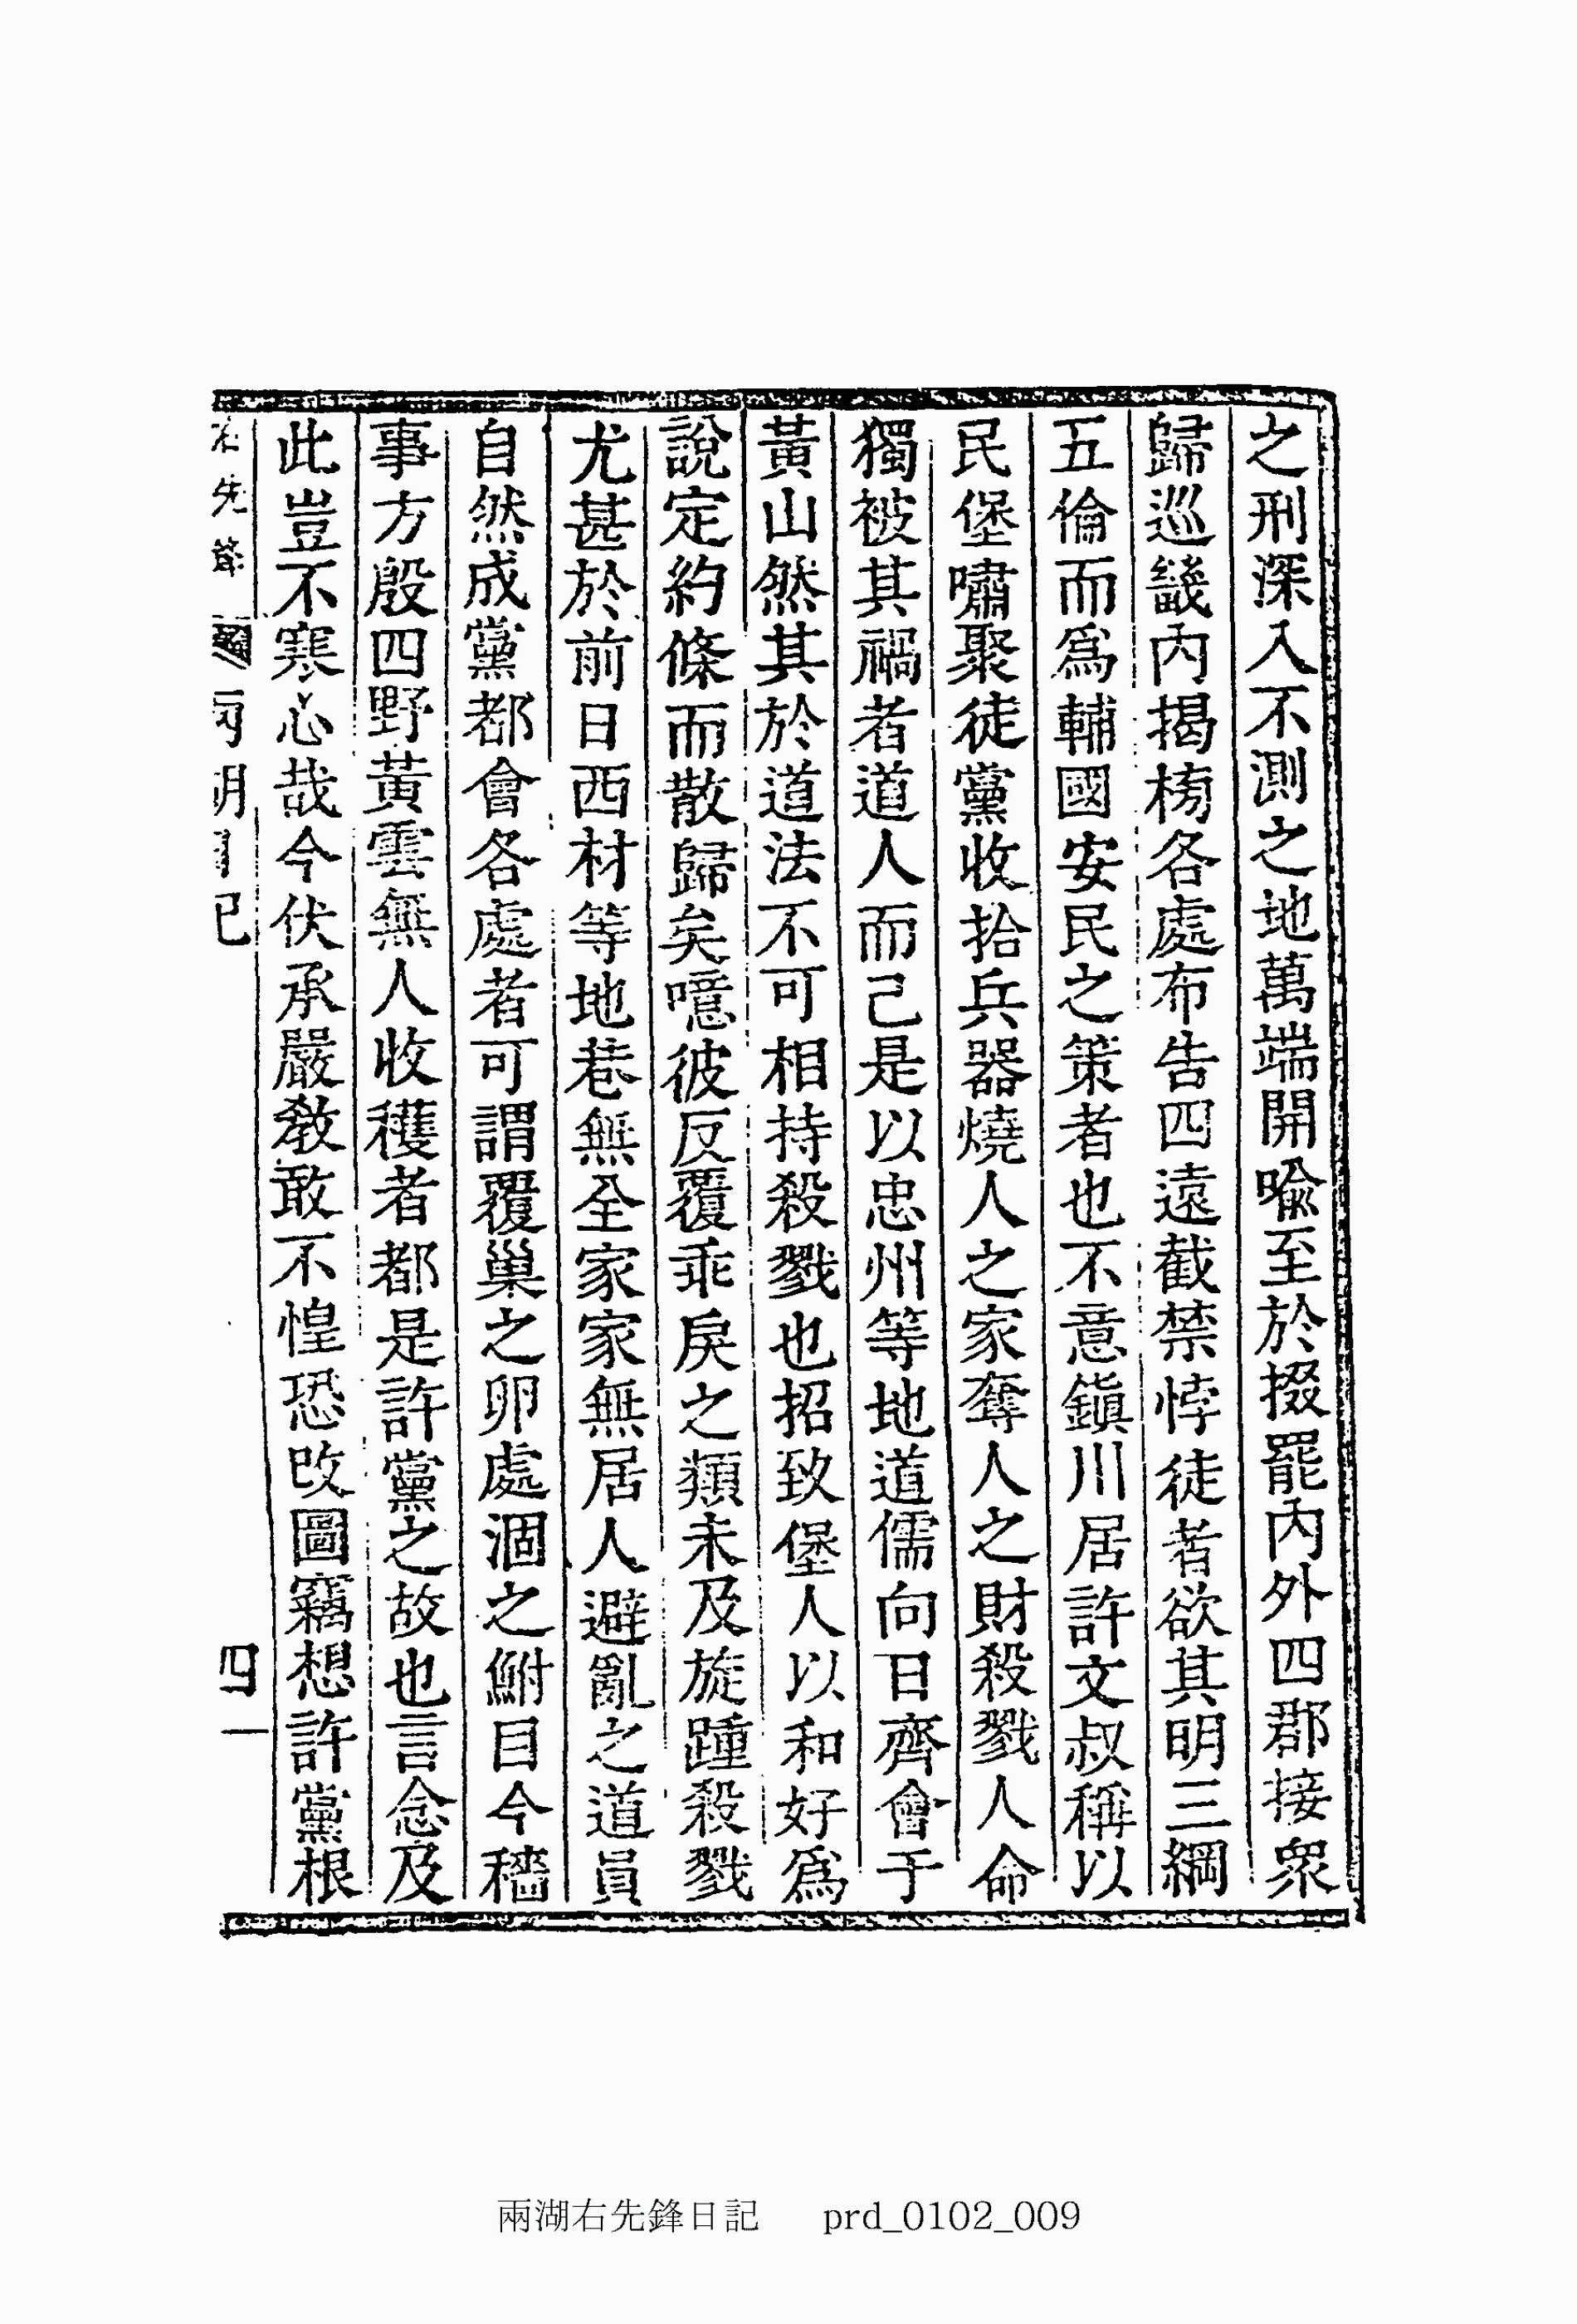 之刑深入不測之地萬端開喩至於掇罷內外四郡接衆
歸巡畿內揭榜各處布告四遠截禁悖徒者欲其明三綱
五倫而爲輔國安民之策者也不意鎭川居許文叔稱以
民堡嘯聚徒黨收拾兵器燒人之家奪人之財殺戮人命
獨被其禍者道人而己是以忠州等地道儒向日齊會于
黃山然其於道法不可相持殺戮也招致堡人以和好爲
說定約條而散歸矣噫彼反覆乖戾之類未及旋踵殺戮
尤甚於前日西材等地巷無全家家無居人避亂之道員
自然成黨都會各處者可謂覆巢之卵處涸之鮒目今穡
事方殷四野黃雲無人收穫者都是許黨之故也言念及
此豈不寒心哉今伏承嚴敎敢不惶恐改圖竊想許黨根
右先鋒 兩湖日記 四一
兩湖右先鋒日記 prd_0102_009